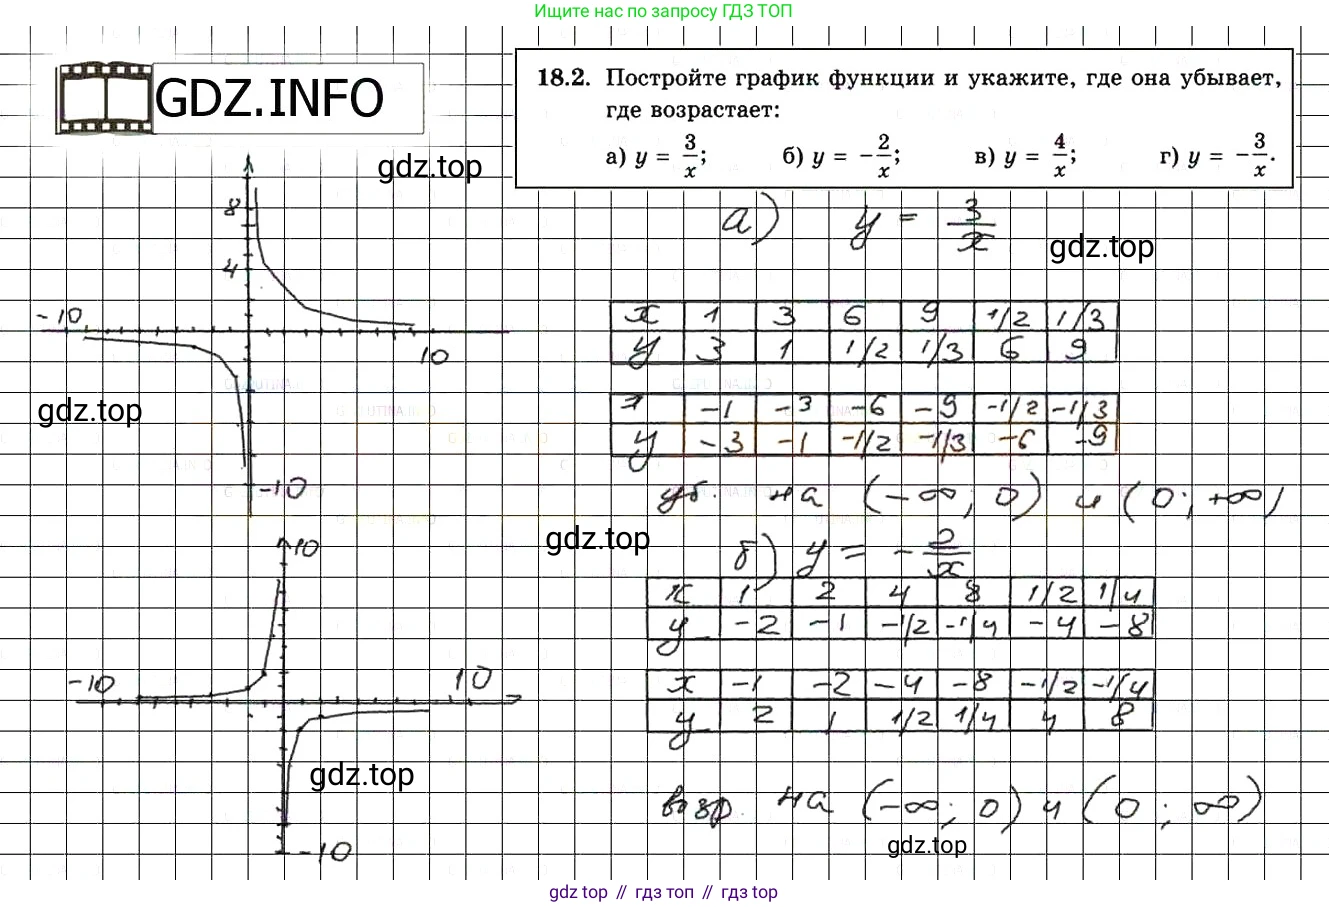 Ищите нас по запросу ГДЗ ТОП
GDZ.INFO
18.2. Постройте график функции и укажите, где она убывает,
где возрастает:
а) y = 3/x; б) y = −2/x; в) y = 4/x; г) y = −3/x.
gdz.top
8
4
-10
10
-10
gdz.top
а) y = 3/x
gdz.top
x 1 3 6 9 1/2 1/3
y 3 1 1/2 1/3 6 9
x -1 -3 -6 -9 -1/2 -1/3
y -3 -1 -1/2 -1/3 -6 -9
уб. на (-∞; 0) и (0; +∞)
gdz.top
б) y = -2/x
x 1 2 4 8 1/2 1/4
y -2 -1 -1/2 -1/4 -4 -8
x -1 -2 -4 -8 -1/2 -1/4
y 2 1 1/2 1/4 4 8
10
-10
10
-10
gdz.top
возр. на (-∞; 0) и (0; ∞)
gdz.top
gdz top // гдз топ // gdz top